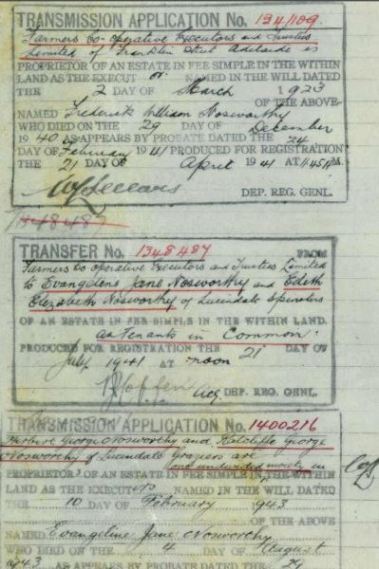 TRANSMISSION APPLICATION No. 134109.
Farmers Co-operative Executors and Trustees
Limited of Franklin Street Adelaide is
PROPRIETOR OF AN ESTATE IN FEE SIMPLE IN THE WITHIN
LAND AS THE EXECUTOR NAMED IN THE WILL DATED
THE 2 DAY OF March 1923
OF THE ABOVE-
NAMED Frederick William Nosworthy
WHO DIED ON THE 29 DAY OF December
1940 AS APPEARS BY PROBATE DATED THE 24
DAY OF February 1941 PRODUCED FOR REGISTRATION
THE 21 DAY OF April 1941 AT 11.45 A.M.
DEP. REG. GENL.
1348487
TRANSFER No. 1348487 FROM
Farmers Co operative Executors and Trustees Limited
to Evangeline Jane Nosworthy and Edith
Elizabeth Nosworthy of Lucindale Spinsters
OF AN ESTATE IN FEE SIMPLE IN THE WITHIN LAND.
as Tenants in Common.
PRODUCED FOR REGISTRATION THE 21 DAY OF
July 1941 AT noon
Acg DEP. REG. GENL.
TRANSMISSION APPLICATION No. 1400216
Herbert George Nosworthy and Ratcliffe George
Nosworthy of Lucindale Graziers are
one undivided moiety in
PROPRIETORS OF AN ESTATE IN FEE SIMPLE IN THE WITHIN
LAND AS THE EXECUTORS NAMED IN THE WILL DATED
THE 10 DAY OF February 1943
OF THE ABOVE
NAMED Evangeline Jane Nosworthy
WHO DIED ON THE 4 DAY OF August
1943 AS APPEARS BY PROBATE DATED THE 29